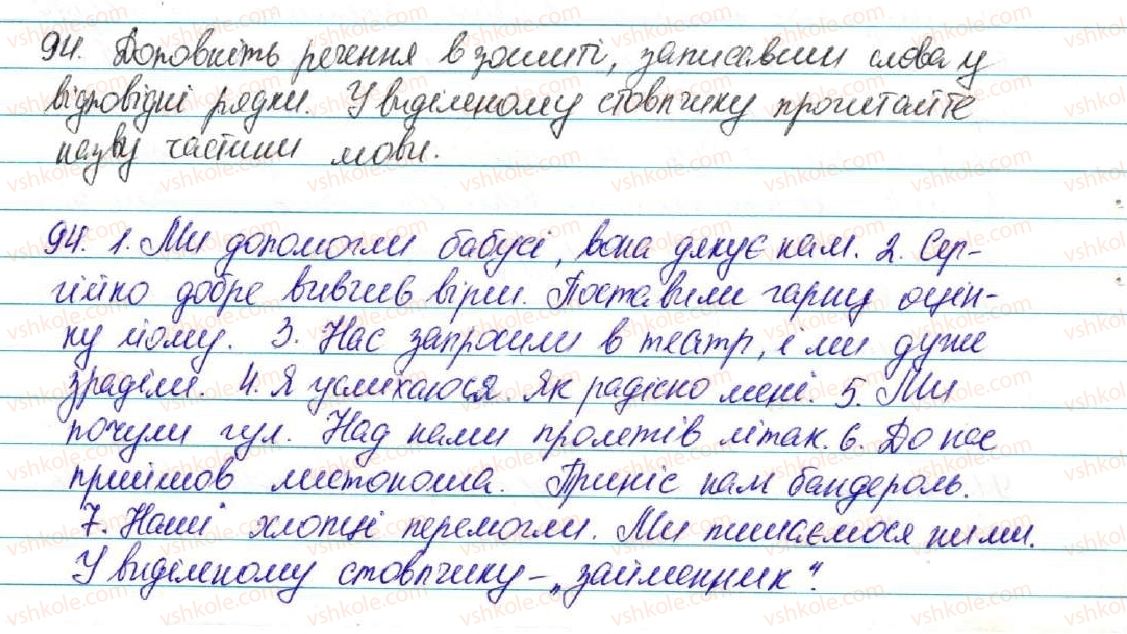 94. Доповніть речення в зошиті, записавши слова у
відповідні рядки. У виділеному стовпчику прочитайте
назву частини мови.
94. 1. Ми допомогли бабусі, вона дякує нам. 2. Сер-
гійко добре вивчив вірш. Поставили гарну оцін-
ку йому. 3. Нас запросили в театр, і ми дуже
зраділи. 4. Я усміхаюся. Як радісно мені. 5. Ми
почули гул. Над нами пролетів літак. 6. До нас
прийшов листоноша. Приніс нам бандероль.
7. Наші хлопці перемогли. Ми пишаємося ними.
У виділеному стовпчику – „займенник“.